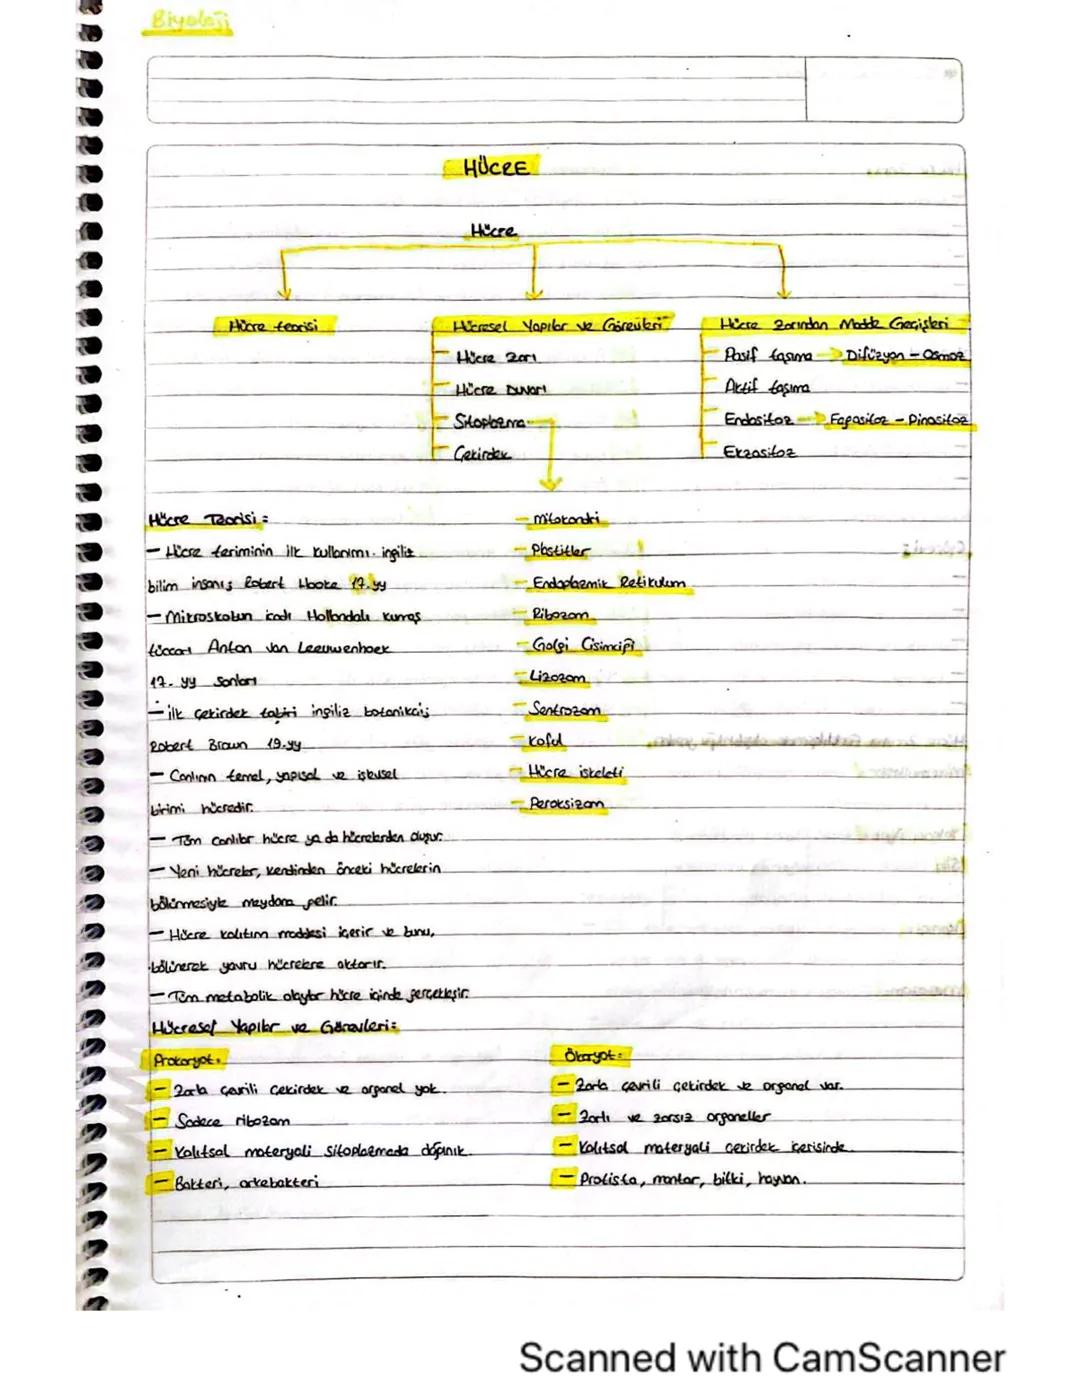 Biyoloji
HÜCRE
Hücre
Hücre teorisi
Hücresel Yapılar ve Görevleri
Hücre zarı
Hücre Duvarı
Sitoplazma
Çekirdek
Hücre zarından Madde Geçişleri
Pasif taşıma → Difüzyon - Osmoz
Aktif taşıma
Endositoz → Fagositoz - Pinositoz
Ekzositoz
- mitokondri
- Plastitler
- Endoplazmik Retikulum
- Ribozom
- Golgi Cisimciği
- Lizozom
- Sentrozom
- Koful
- Hücre iskeleti
- Peroksizom
Hücre Teorisi :
- Hücre teriminin ilk kullanımı ingiliz
bilim insanı Robert Hooke 17.yy
- Mikroskobun icadı Hollandalı kumaş
tüccarı Anton van Leeuwenhoek
17. yy sonları
- ilk çekirdek tabiri ingiliz botanikçi
Robert Brown 19.yy
- Canlının temel, yapısal ve işlevsel
birimi hücredir.
- Tüm canlılar hücre ya da hücrelerden oluşur.
- Yeni hücreler, kendinden önceki hücrelerin
bölünmesiyle meydana gelir.
- Hücre kalıtım maddesi içerir ve bunu,
bölünerek yavru hücrelere aktarır.
- Tüm metabolik olaylar hücre içinde gerçekleşir.
Hücresel Yapılar ve Görevleri:
Prokaryot:
- Zarla çevrili çekirdek ve organel yok.
- Sadece ribozom
- Kalıtsal materyali sitoplazmada dağınık.
- Bakteri, arkebakteri
Ökaryot:
- Zarla çevrili çekirdek ve organel var.
- Zarlı ve zarsız organeller
- Kalıtsal materyali çekirdek içerisinde.
- Protista, mantar, bitki, hayvan.
Scanned with CamScanner